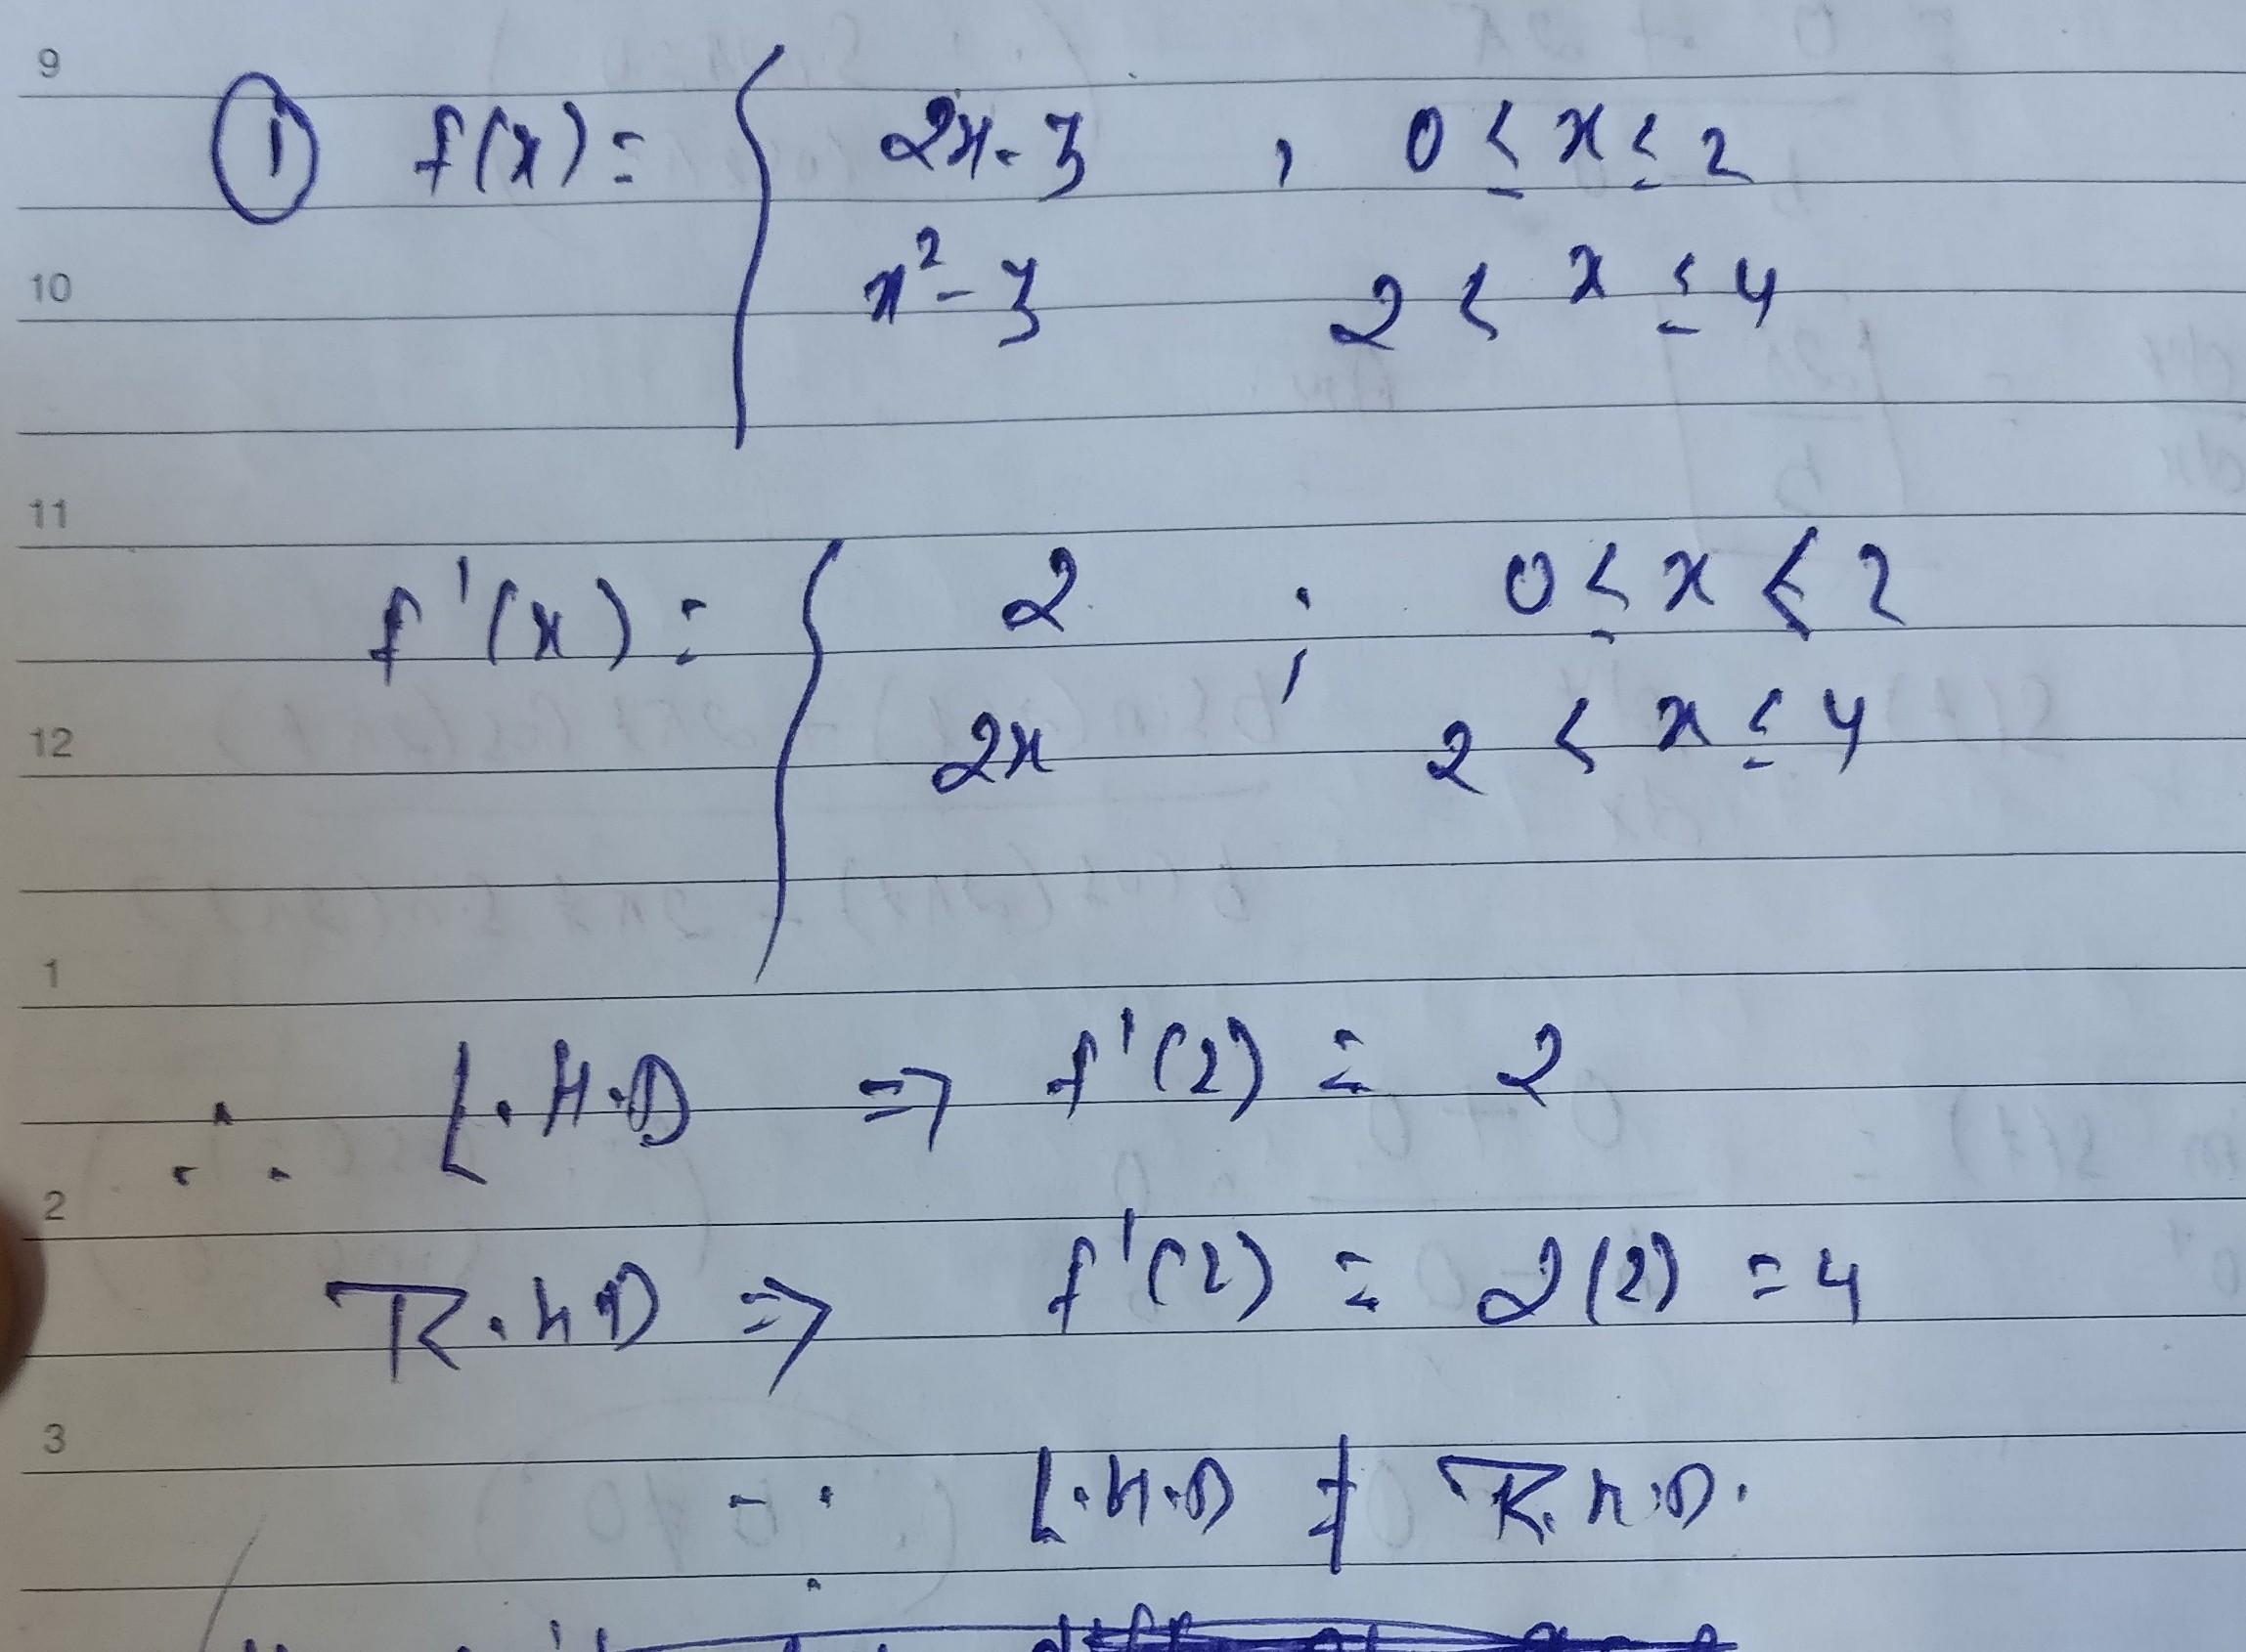 9
① f(x) = { 2x - 3 , 0 ≤ x ≤ 2
10
x² - 3 2 < x ≤ 4
11
f'(x) = { 2 ; 0 ≤ x < 2
12
2x 2 < x ≤ 4
1
∴ L.H.D ⇒ f'(2) = 2
2
R.H.D ⇒ f'(2) = 2(2) = 4
3
∵ L.H.D ≠ R.H.D.